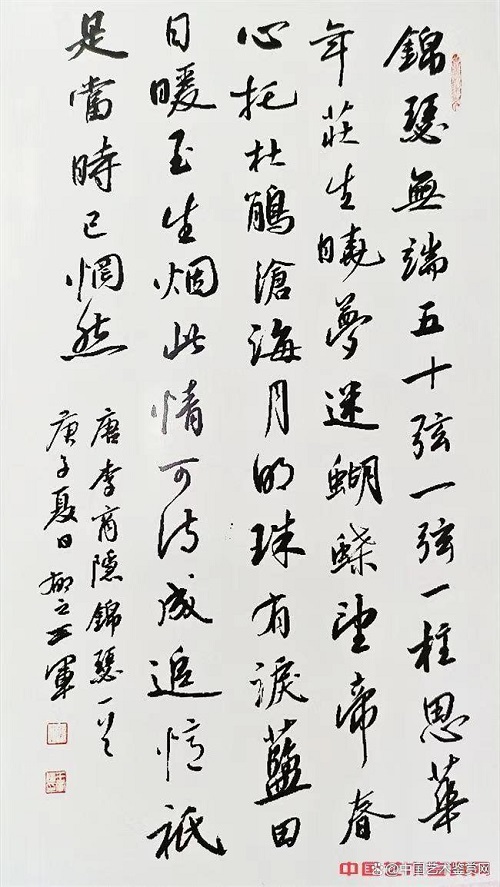 錦瑟無端五十弦一弦一柱思華
年莊生曉夢迷蝴蝶望帝春
心托杜鵑滄海月明珠有淚藍田
日暖玉生烟此情可待成追憶祇
是當時已惘然
唐李商隱錦瑟一首
庚子夏日軍
中国艺术鉴赏网